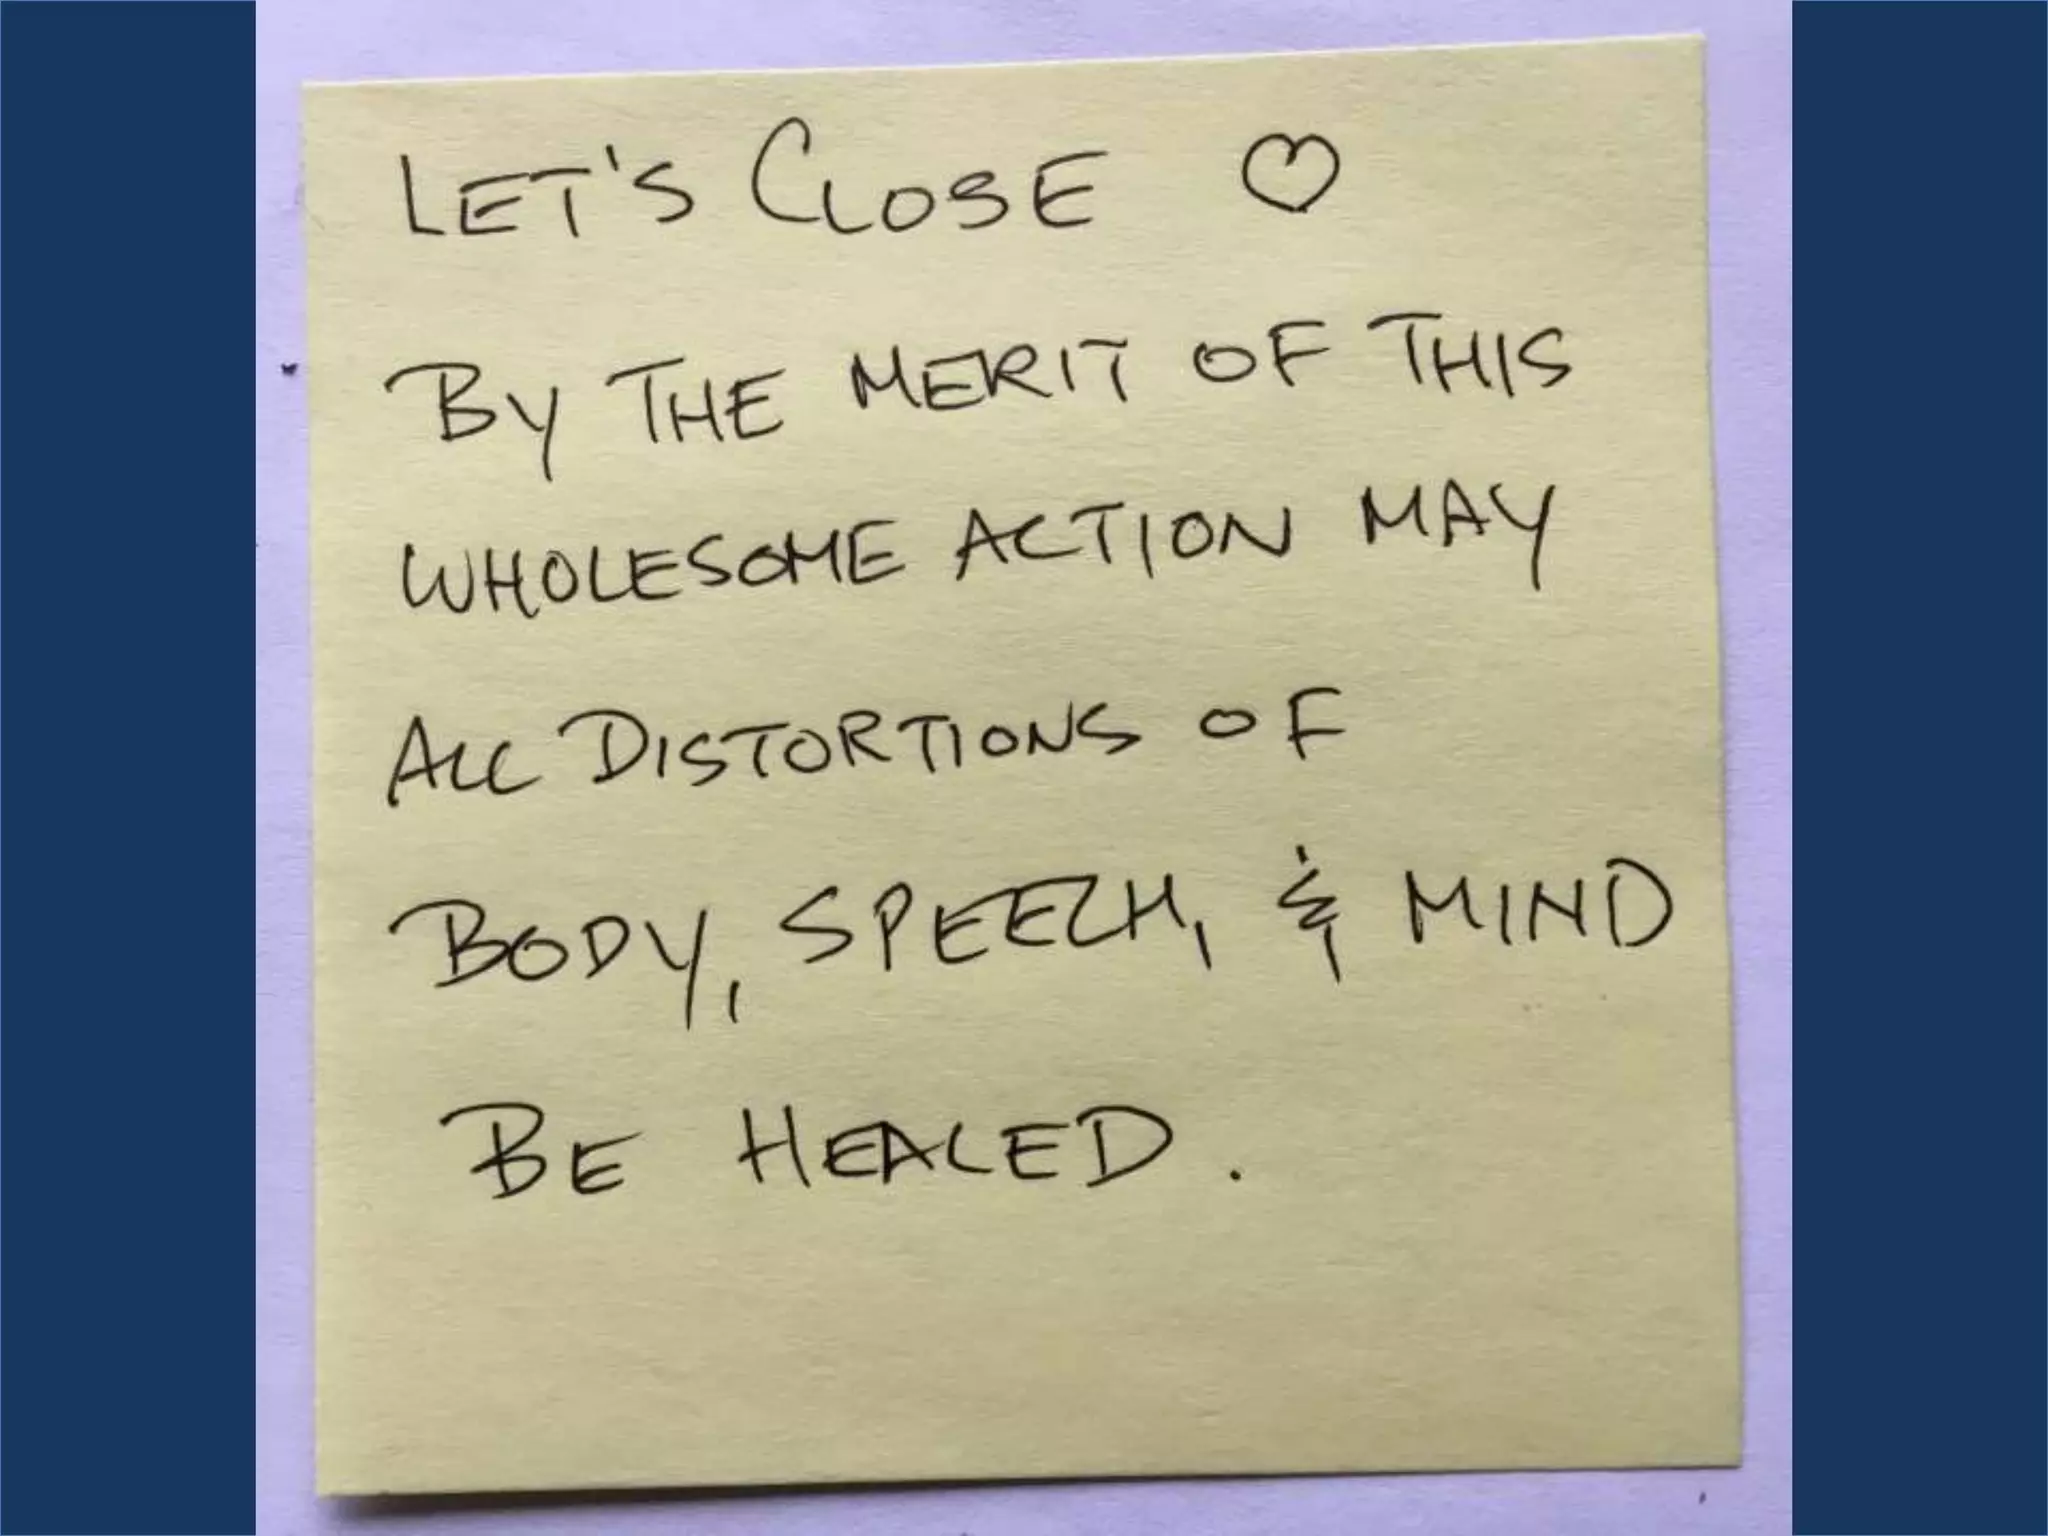 LET'S CLOSE ♡
BY THE MERIT OF THIS
WHOLESOME ACTION MAY
ALL DISTORTIONS OF
BODY, SPEECH, & MIND
BE HEALED.